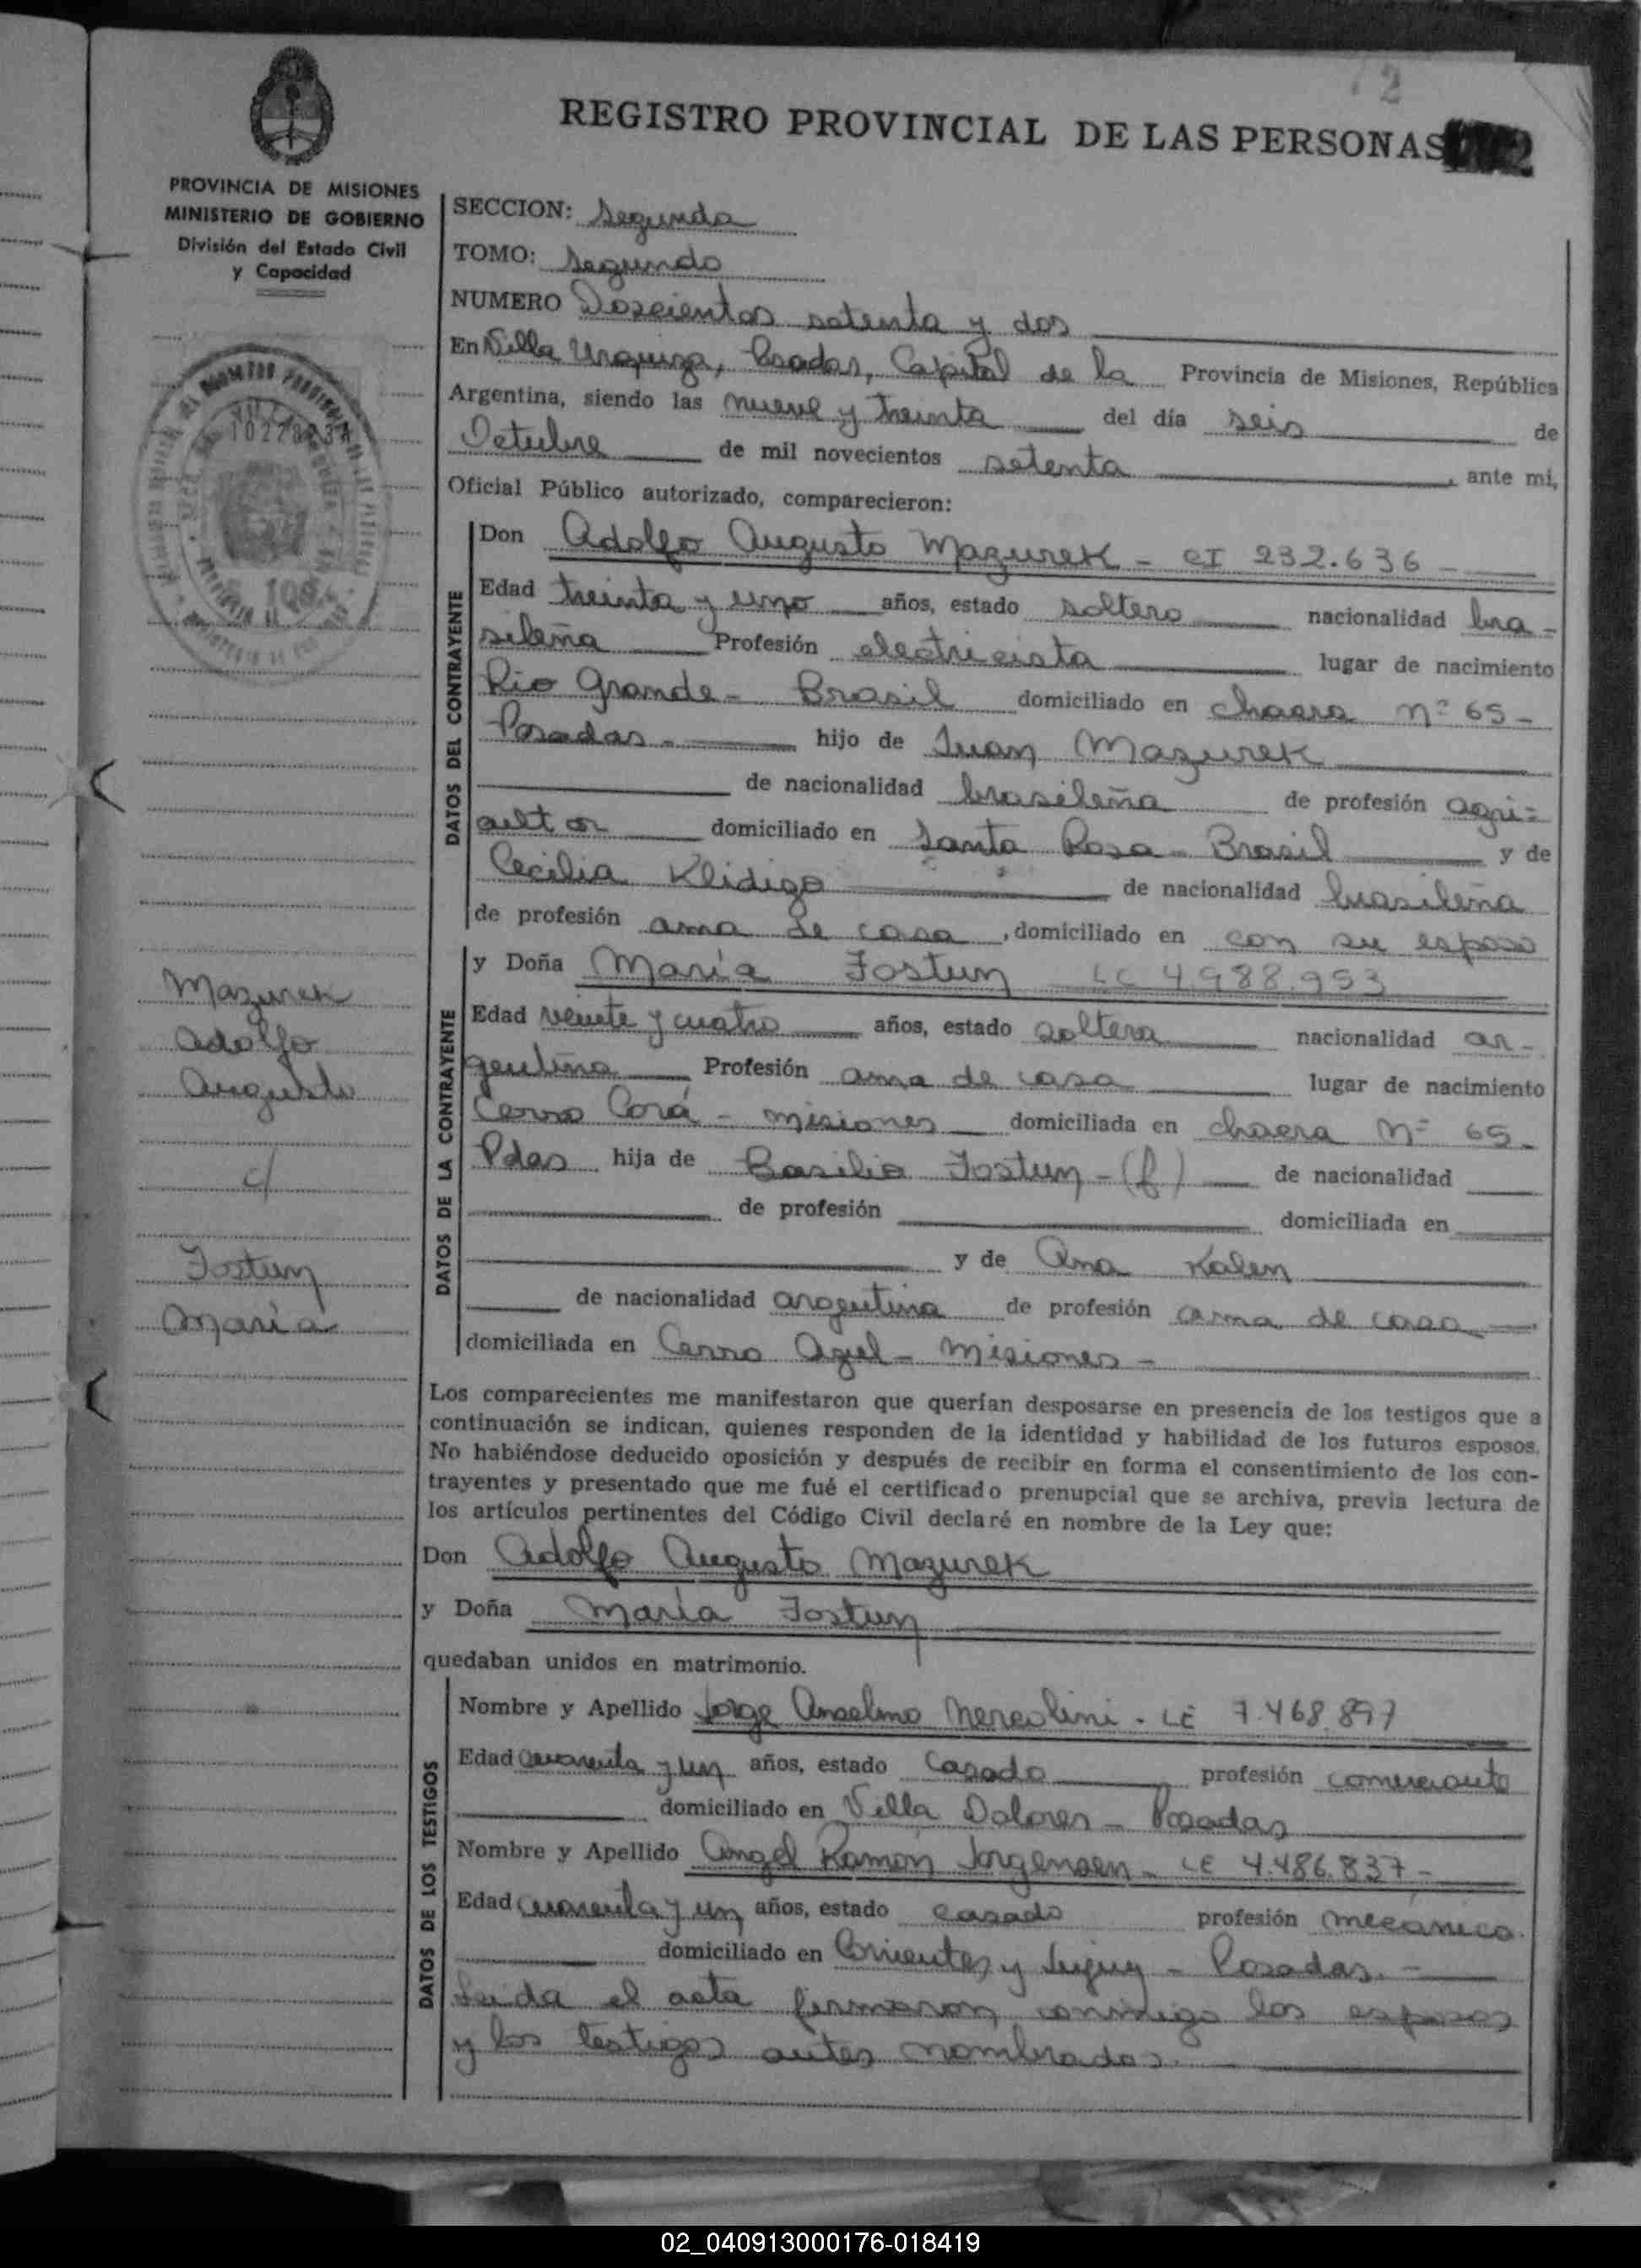 2
REGISTRO PROVINCIAL DE LAS PERSONAS
PROVINCIA DE MISIONES
MINISTERIO DE GOBIERNO
División del Estado Civil
y Capacidad
SECCION: Segunda
TOMO: Segundo
NUMERO Doscientos setenta y dos
En Villa Urquiza, Posadas, Capital de la Provincia de Misiones, República
Argentina, siendo las nueve y treinta del día seis de
Octubre de mil novecientos setenta, ante mi,
Oficial Público autorizado, comparecieron:
DATOS DEL CONTRAYENTE
Don Adolfo Augusto Mazurek - CI 232.636 -
Edad treinta y uno años, estado soltero nacionalidad bra-
sileña Profesión electricista lugar de nacimiento
Rio Grande - Brasil domiciliado en chacra nº 65 -
Posadas - hijo de Juan Mazurek
de nacionalidad brasileña de profesión agri=
cultor domiciliado en Santa Rosa - Brasil y de
Cecilia Klidigo de nacionalidad brasileña
de profesión ama de casa, domiciliado en con su esposo
DATOS DE LA CONTRAYENTE
y Doña María Fostun LC 4.988.953
Edad veinte y cuatro años, estado soltera nacionalidad ar-
gentina Profesión ama de casa lugar de nacimiento
Cerro Corá - Misiones domiciliada en chacra Nº 65 -
Pdas hija de Basilio Fostun - (f) de nacionalidad
de profesión domiciliada en
y de Ana Kalen
de nacionalidad argentina de profesión ama de casa
domiciliada en Cerro Azul - Misiones -
Mazurek
Adolfo
Augusto
c/
Fostun
María
Los comparecientes me manifestaron que querían desposarse en presencia de los testigos que a
continuación se indican, quienes responden de la identidad y habilidad de los futuros esposos.
No habiéndose deducido oposición y después de recibir en forma el consentimiento de los con-
trayentes y presentado que me fué el certificado prenupcial que se archiva, previa lectura de
los artículos pertinentes del Código Civil declaré en nombre de la Ley que:
Don Adolfo Augusto Mazurek
y Doña María Fostun
quedaban unidos en matrimonio.
DATOS DE LOS TESTIGOS
Nombre y Apellido Jorge Anselmo Mereolini - LE 7.468.897
Edad Cuarenta y un años, estado Casado profesión comerciante
domiciliado en Villa Dolores - Posadas
Nombre y Apellido Angel Ramón Jorgensen - LE 4.486.837 -
Edad Cuarenta y un años, estado casado profesión mecánico
domiciliado en Corrientes y Jujuy - Posadas. -
Leída el acta firmaron conmigo los esposos
y los testigos antes nombrados.
02_040913000176-018419